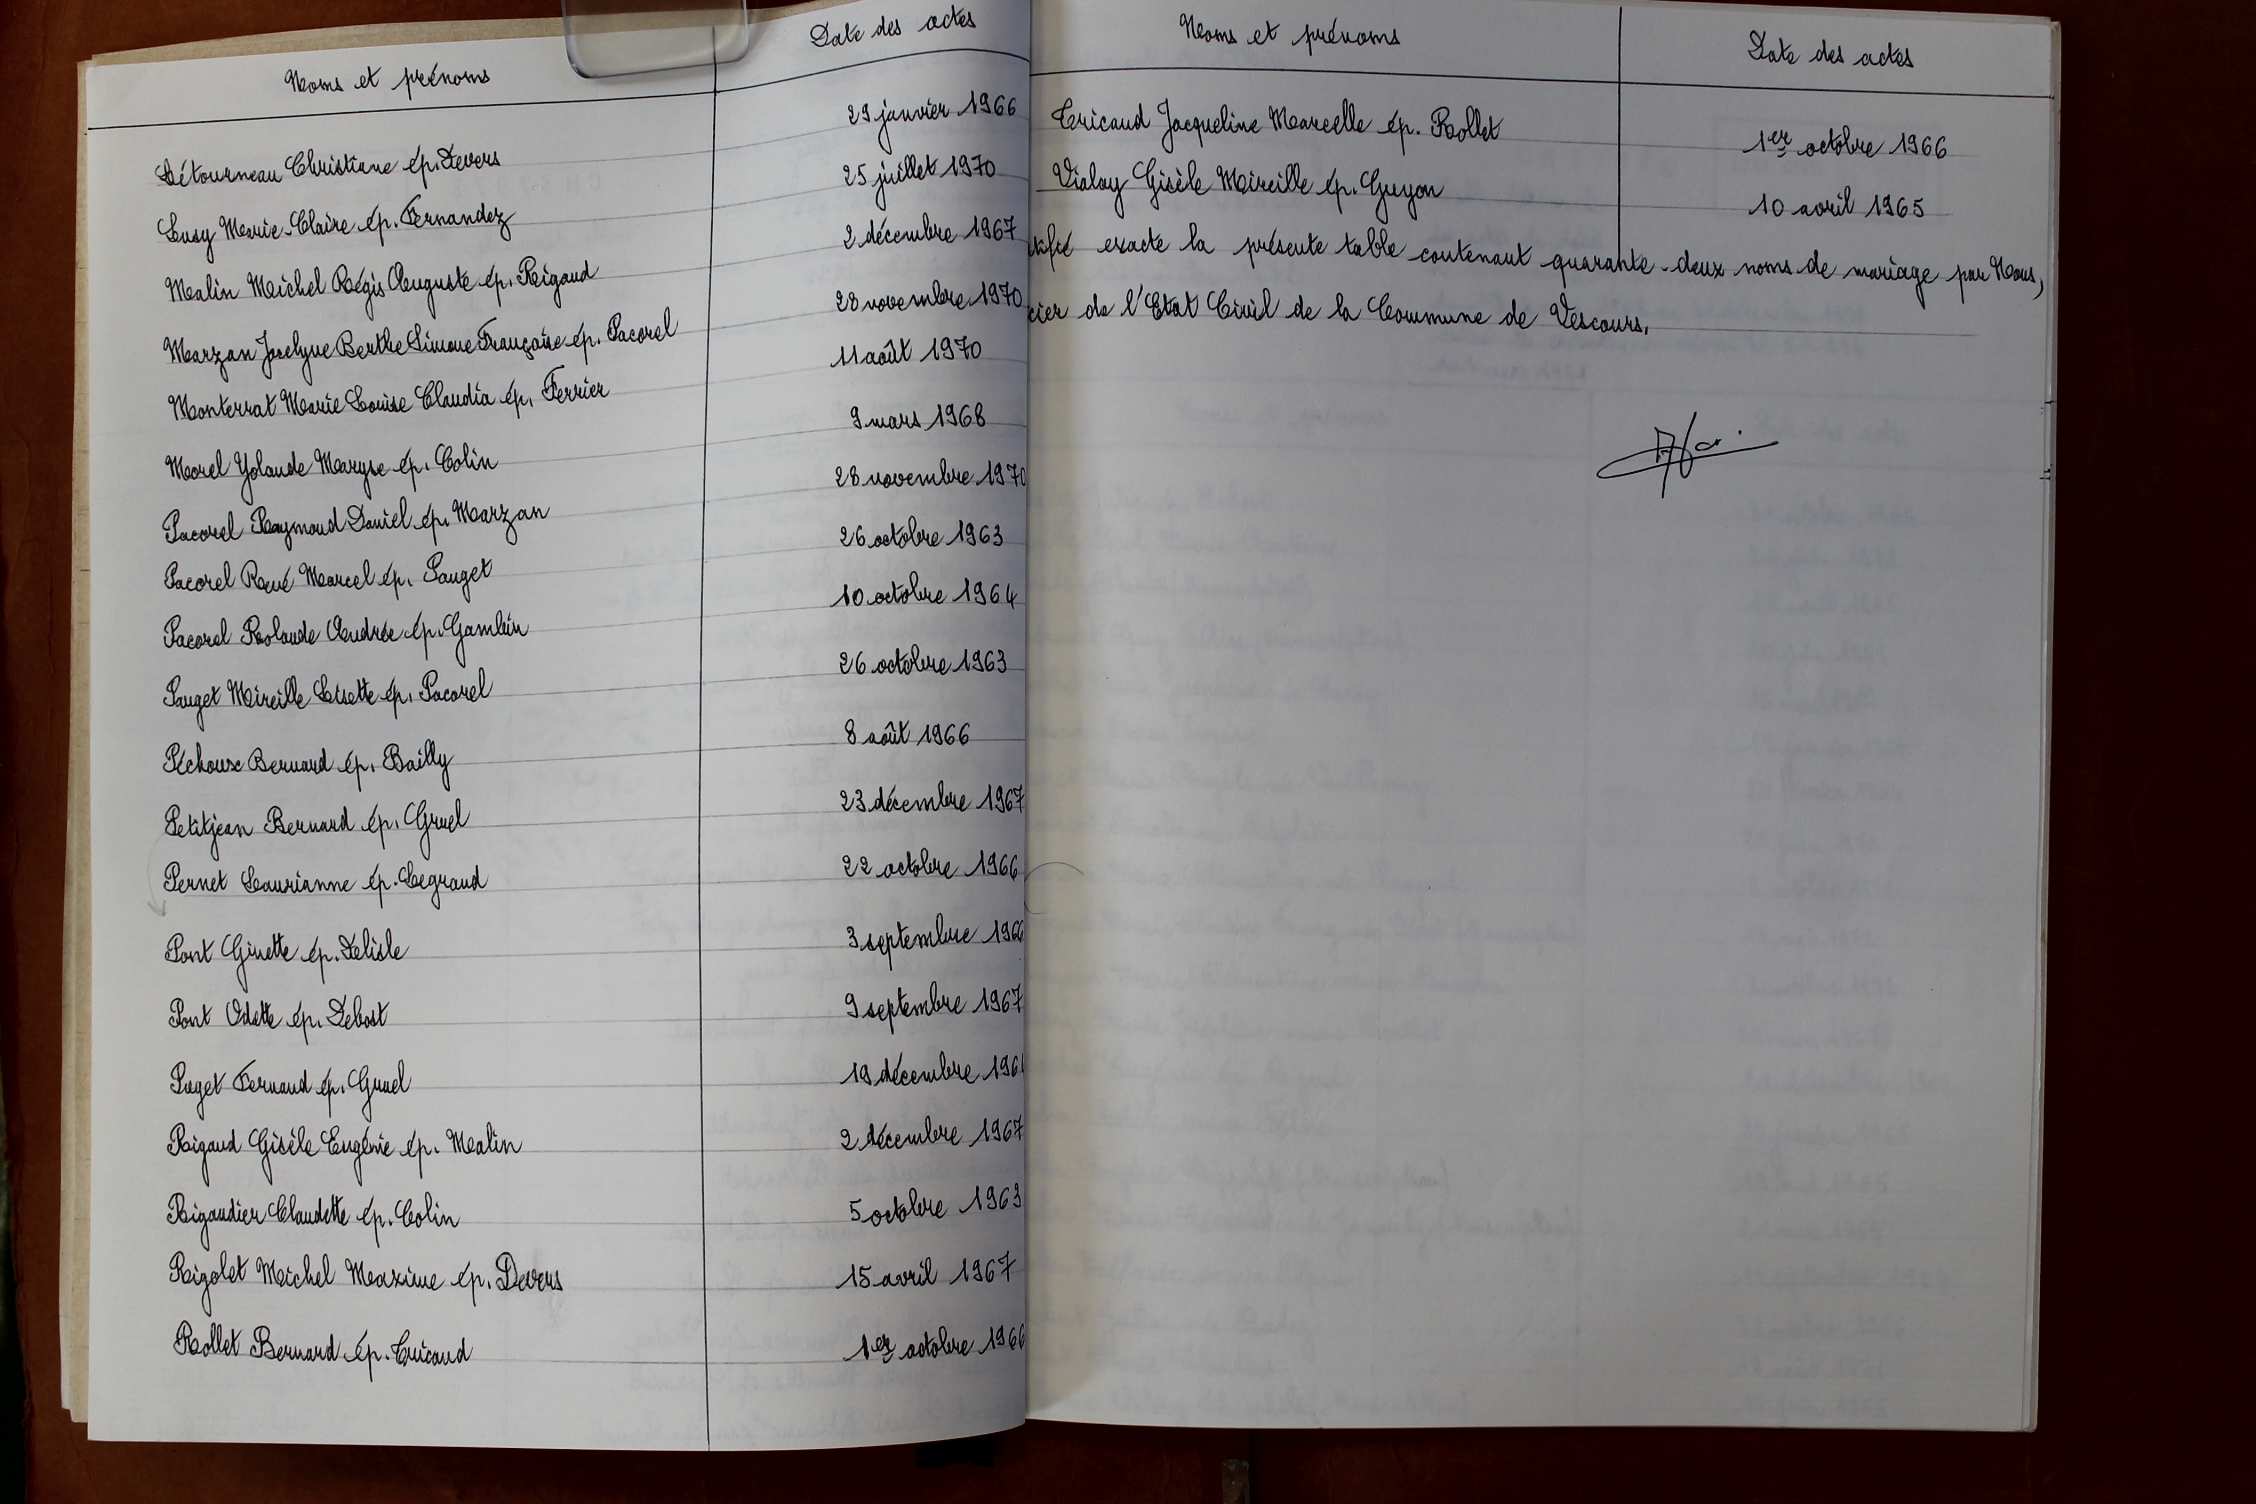 Noms et prénoms Date des actes
Létourneau Christiane ép. Devers 29 janvier 1966
Lusy Marie-Claire ép. Fernandez 25 juillet 1970
Malin Michel Régis Auguste ép. Rigaud 2 décembre 1967
Marzan Jocelyne Berthe Simone Françoise ép. Pacorel 28 novembre 1970
Monterrat Marie Louise Claudia ép. Ferrier 11 août 1970
Morel Yolande Maryse ép. Colin 9 mars 1968
Pacorel Raymond Daniel ép. Marzan 28 novembre 1970
Pacorel René Marcel ép. Pauget 26 octobre 1963
Pacorel Rolande Andrée ép. Gambin 10 octobre 1964
Pauget Mireille Lisette ép. Pacorel 26 octobre 1963
Péchoux Bernard ép. Bailly 8 août 1966
Petitjean Bernard ép. Gruel 23 décembre 1967
Pernet Laurianne ép. Legrand 22 octobre 1966
Pont Ginette ép. Delisle 3 septembre 1966
Pont Odette ép. Debost 9 septembre 1967
Puget Fernand ép. Gruel 19 décembre 196
Rigaud Gisèle Eugénie ép. Malin 2 décembre 1967
Rigaudier Claudette ép. Colin 5 octobre 1963
Rigolet Michel Maxime ép. Devers 15 avril 1967
Rollet Bernard ép. Tricaud 1er octobre 1966
Noms et prénoms Date des actes
Tricaud Jacqueline Marcelle ép. Rollet 1er octobre 1966
Vialay Gisèle Mireille ép. Guyon 10 avril 1965
tifié exacte la présente table contenant quarante-deux noms de mariage par Nous,
cier de l'Etat Civil de la Commune de Vescours.